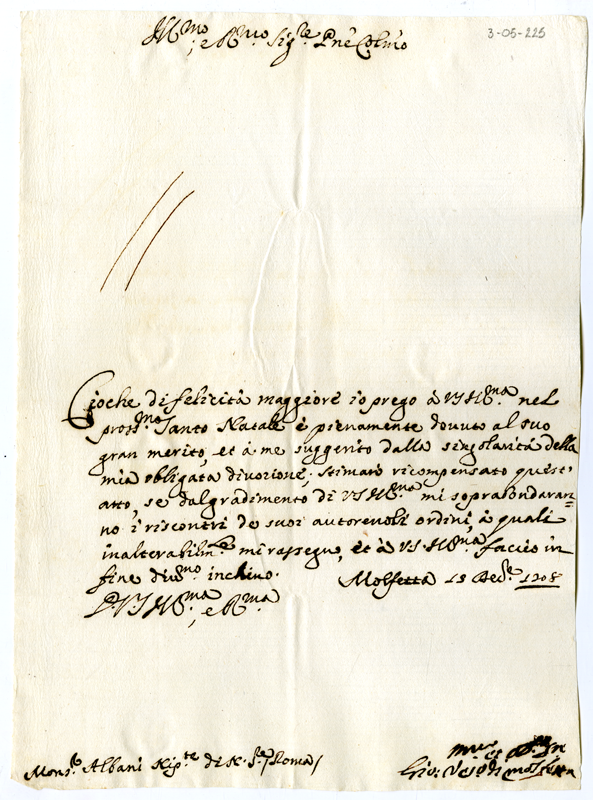 Ill.mo, e R.mo Sig.re P.ne Col.mo
3-05-225
Cioche di felicità maggiore io prego à VS Ill.ma nel
pross.mo Santo Natale è pienamente douuto al suo
gran merito, et à me suggerito dalla singolarità della
mia obligata diuozione. Stimarò ricompensato quest'
atto, se dal gradimento di VS Ill.ma mi soprabondaran=
no i riscontri de suoi autoreuoli ordini, à quali
inalterabilm.te mi rassegno, et à VS. Ill.ma faccio in
fine diu.mo inchino.
Molfetta 15 Dec.re 1708
D. VS Ill.ma, e R.ma
Mons.r Albani Nip.te di N. S.re /Roma/
Gio: